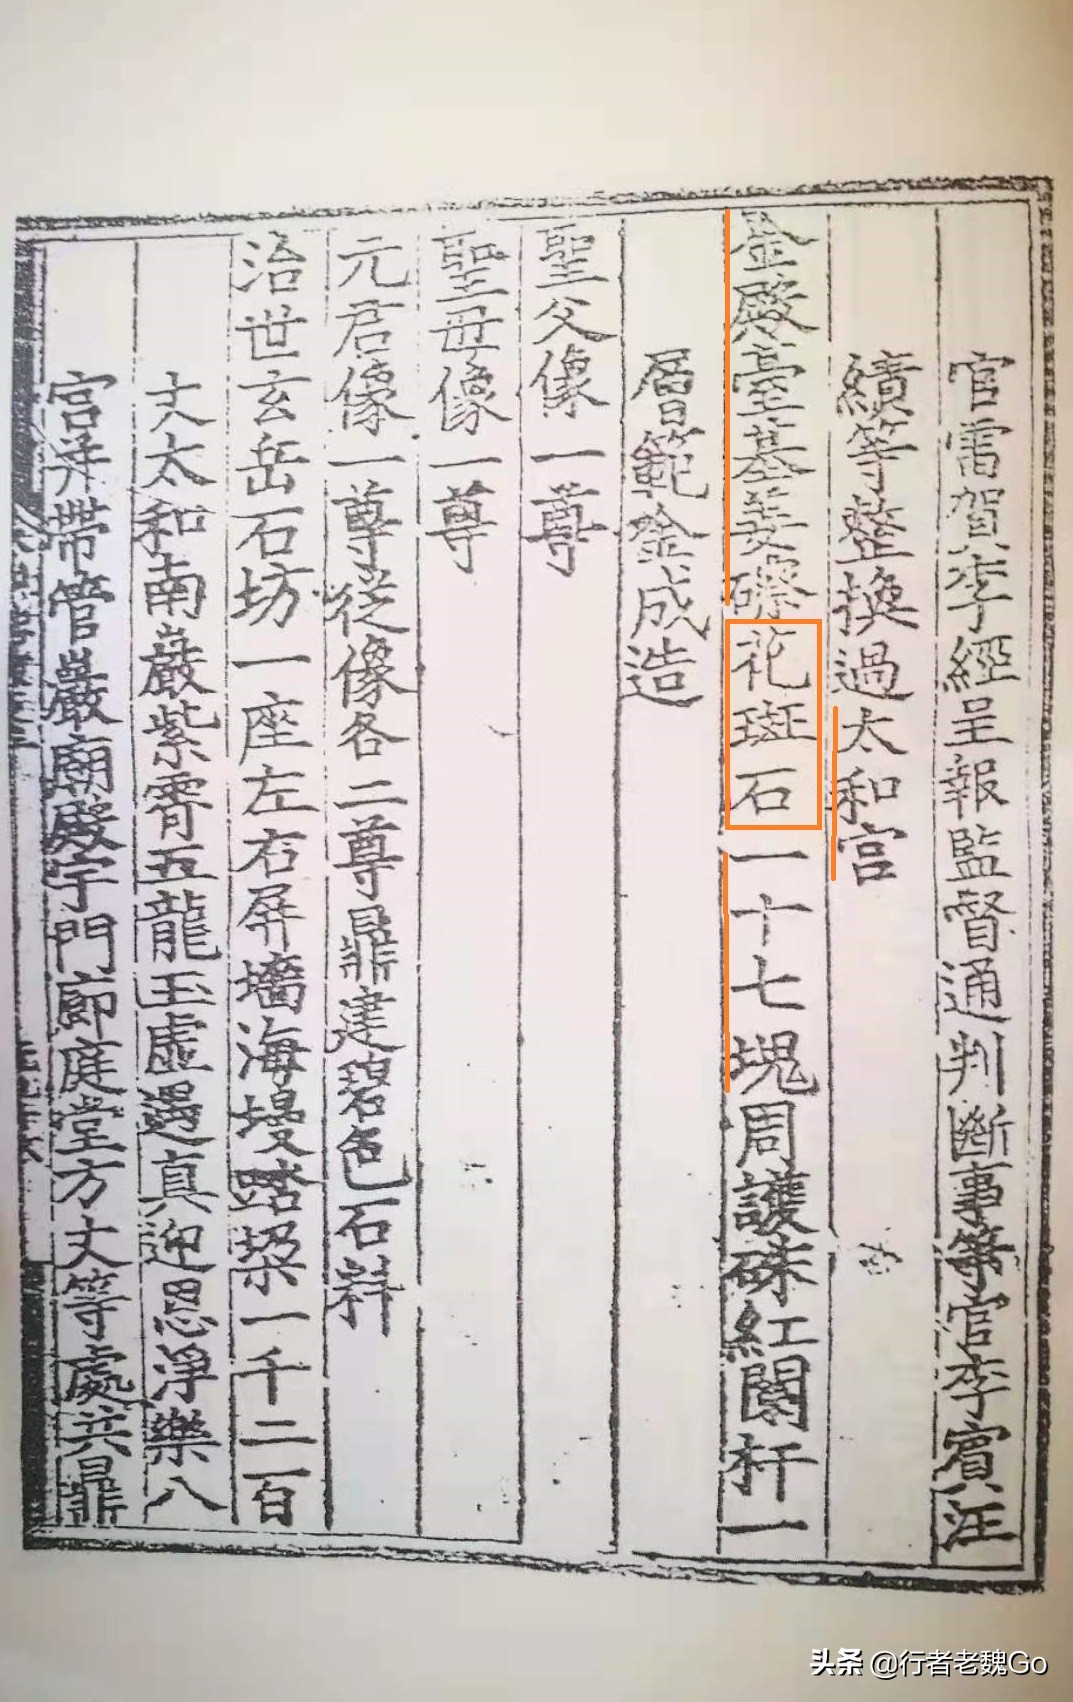 官雷賀李經呈報監督通判斷事等官李賓汪
績等整換過太和宮
金殿臺基姜礤花斑石一十七塊周護硃紅闌杆一
層範金成造
聖父像一尊
聖母像一尊
元君像一尊從像各二尊鼎建碧色石料
治世玄岳石坊一座左右屏墻海墁踏𥕢一千二百
丈太和南巖紫霄五龍玉虛遇真迎恩淨樂八
宮并帶管巖廟殿宇門廊庭堂方丈等處共鼎
头条 @行者老魏Go